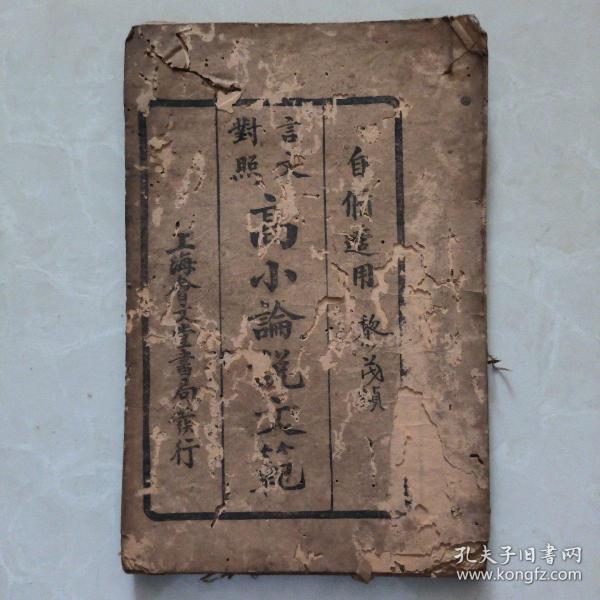 自修適用
言文
對照
高小論說文範
上海會文堂書局發行
孔夫子旧书网
www.kongfz.com